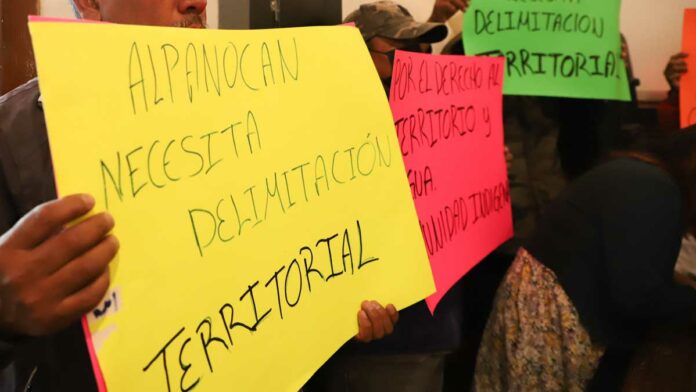 ALPANOCAN
NECESITA
DELIMITACIÓN
TERRITORIAL
POR EL DERECHO AL
TERRITORIO Y
AGUA.
UNIDAD INDIGEN
NECESITA
DELIMITACION
TERRITORIAL